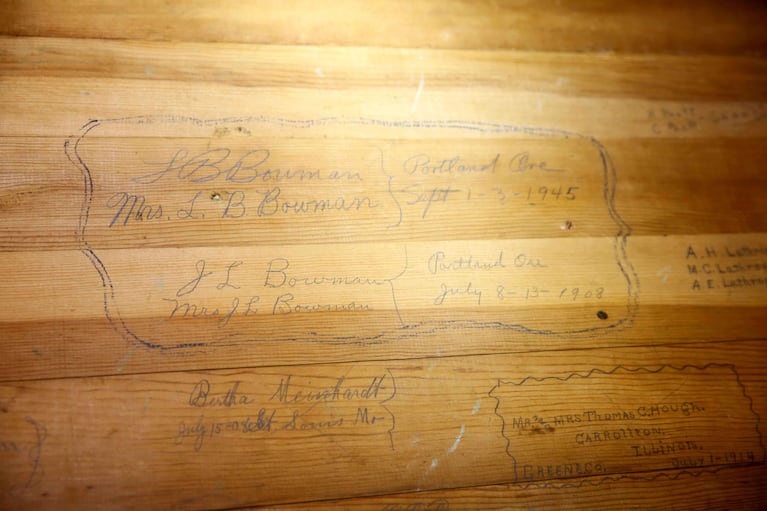 L B Bowman
Mrs. L. B. Bowman
Portland Ore
Sept 1-3-1945
J L Bowman
Mrs J L Bowman
Portland Ore
July 8-13-1908
A. H.
M. C.
A. E.
Bertha Meinhardt
July 15-08 St. Louis Mo
MR. & MRS THOMAS C. HOUGH.
CARROLLTON.
ILLINOIS.
GREENE CO. JULY 1-1914